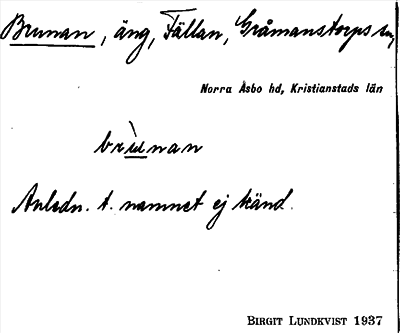 Brunan, äng, Fällan, Gråmanstorps sn,
Norra Åsbo hd, Kristianstads län
Anledn. t. namnet ej känd.
BIRGIT LUNDKVIST 1937